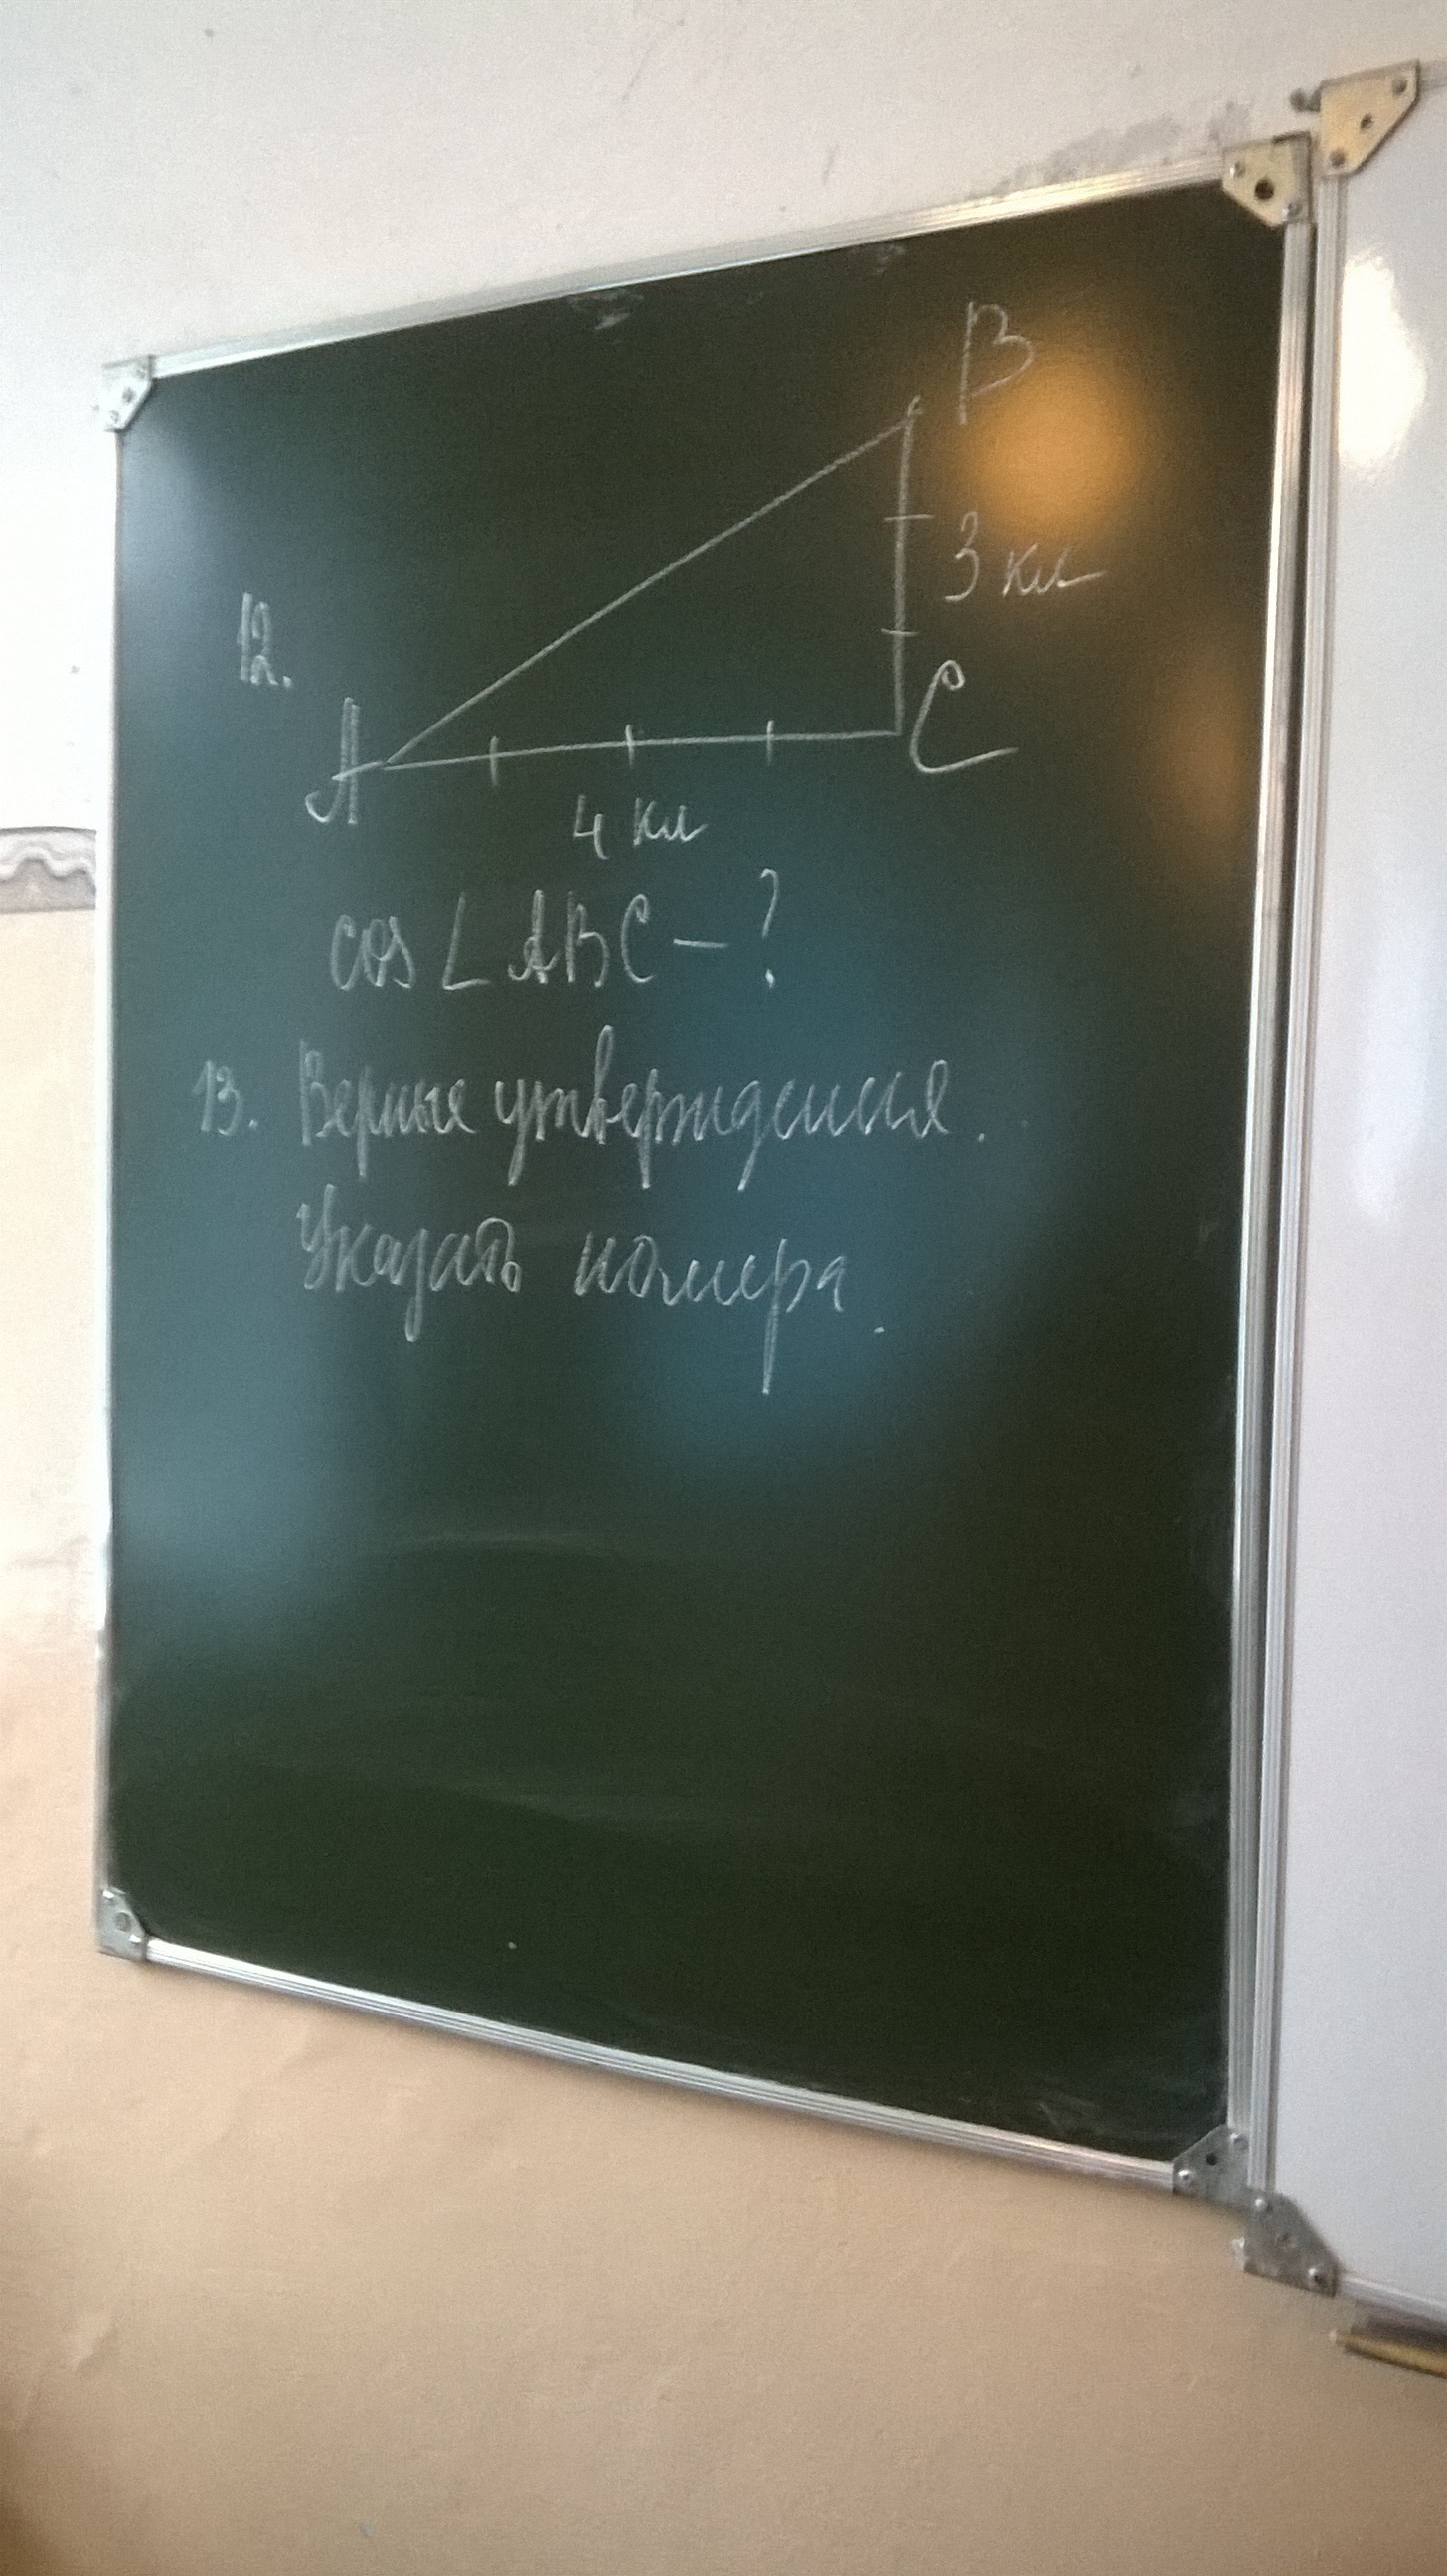 B
3 кл
12.
A
C
4 кл
cos ∠ ABC – ?
13. Верные утверждения.
Указать номера.